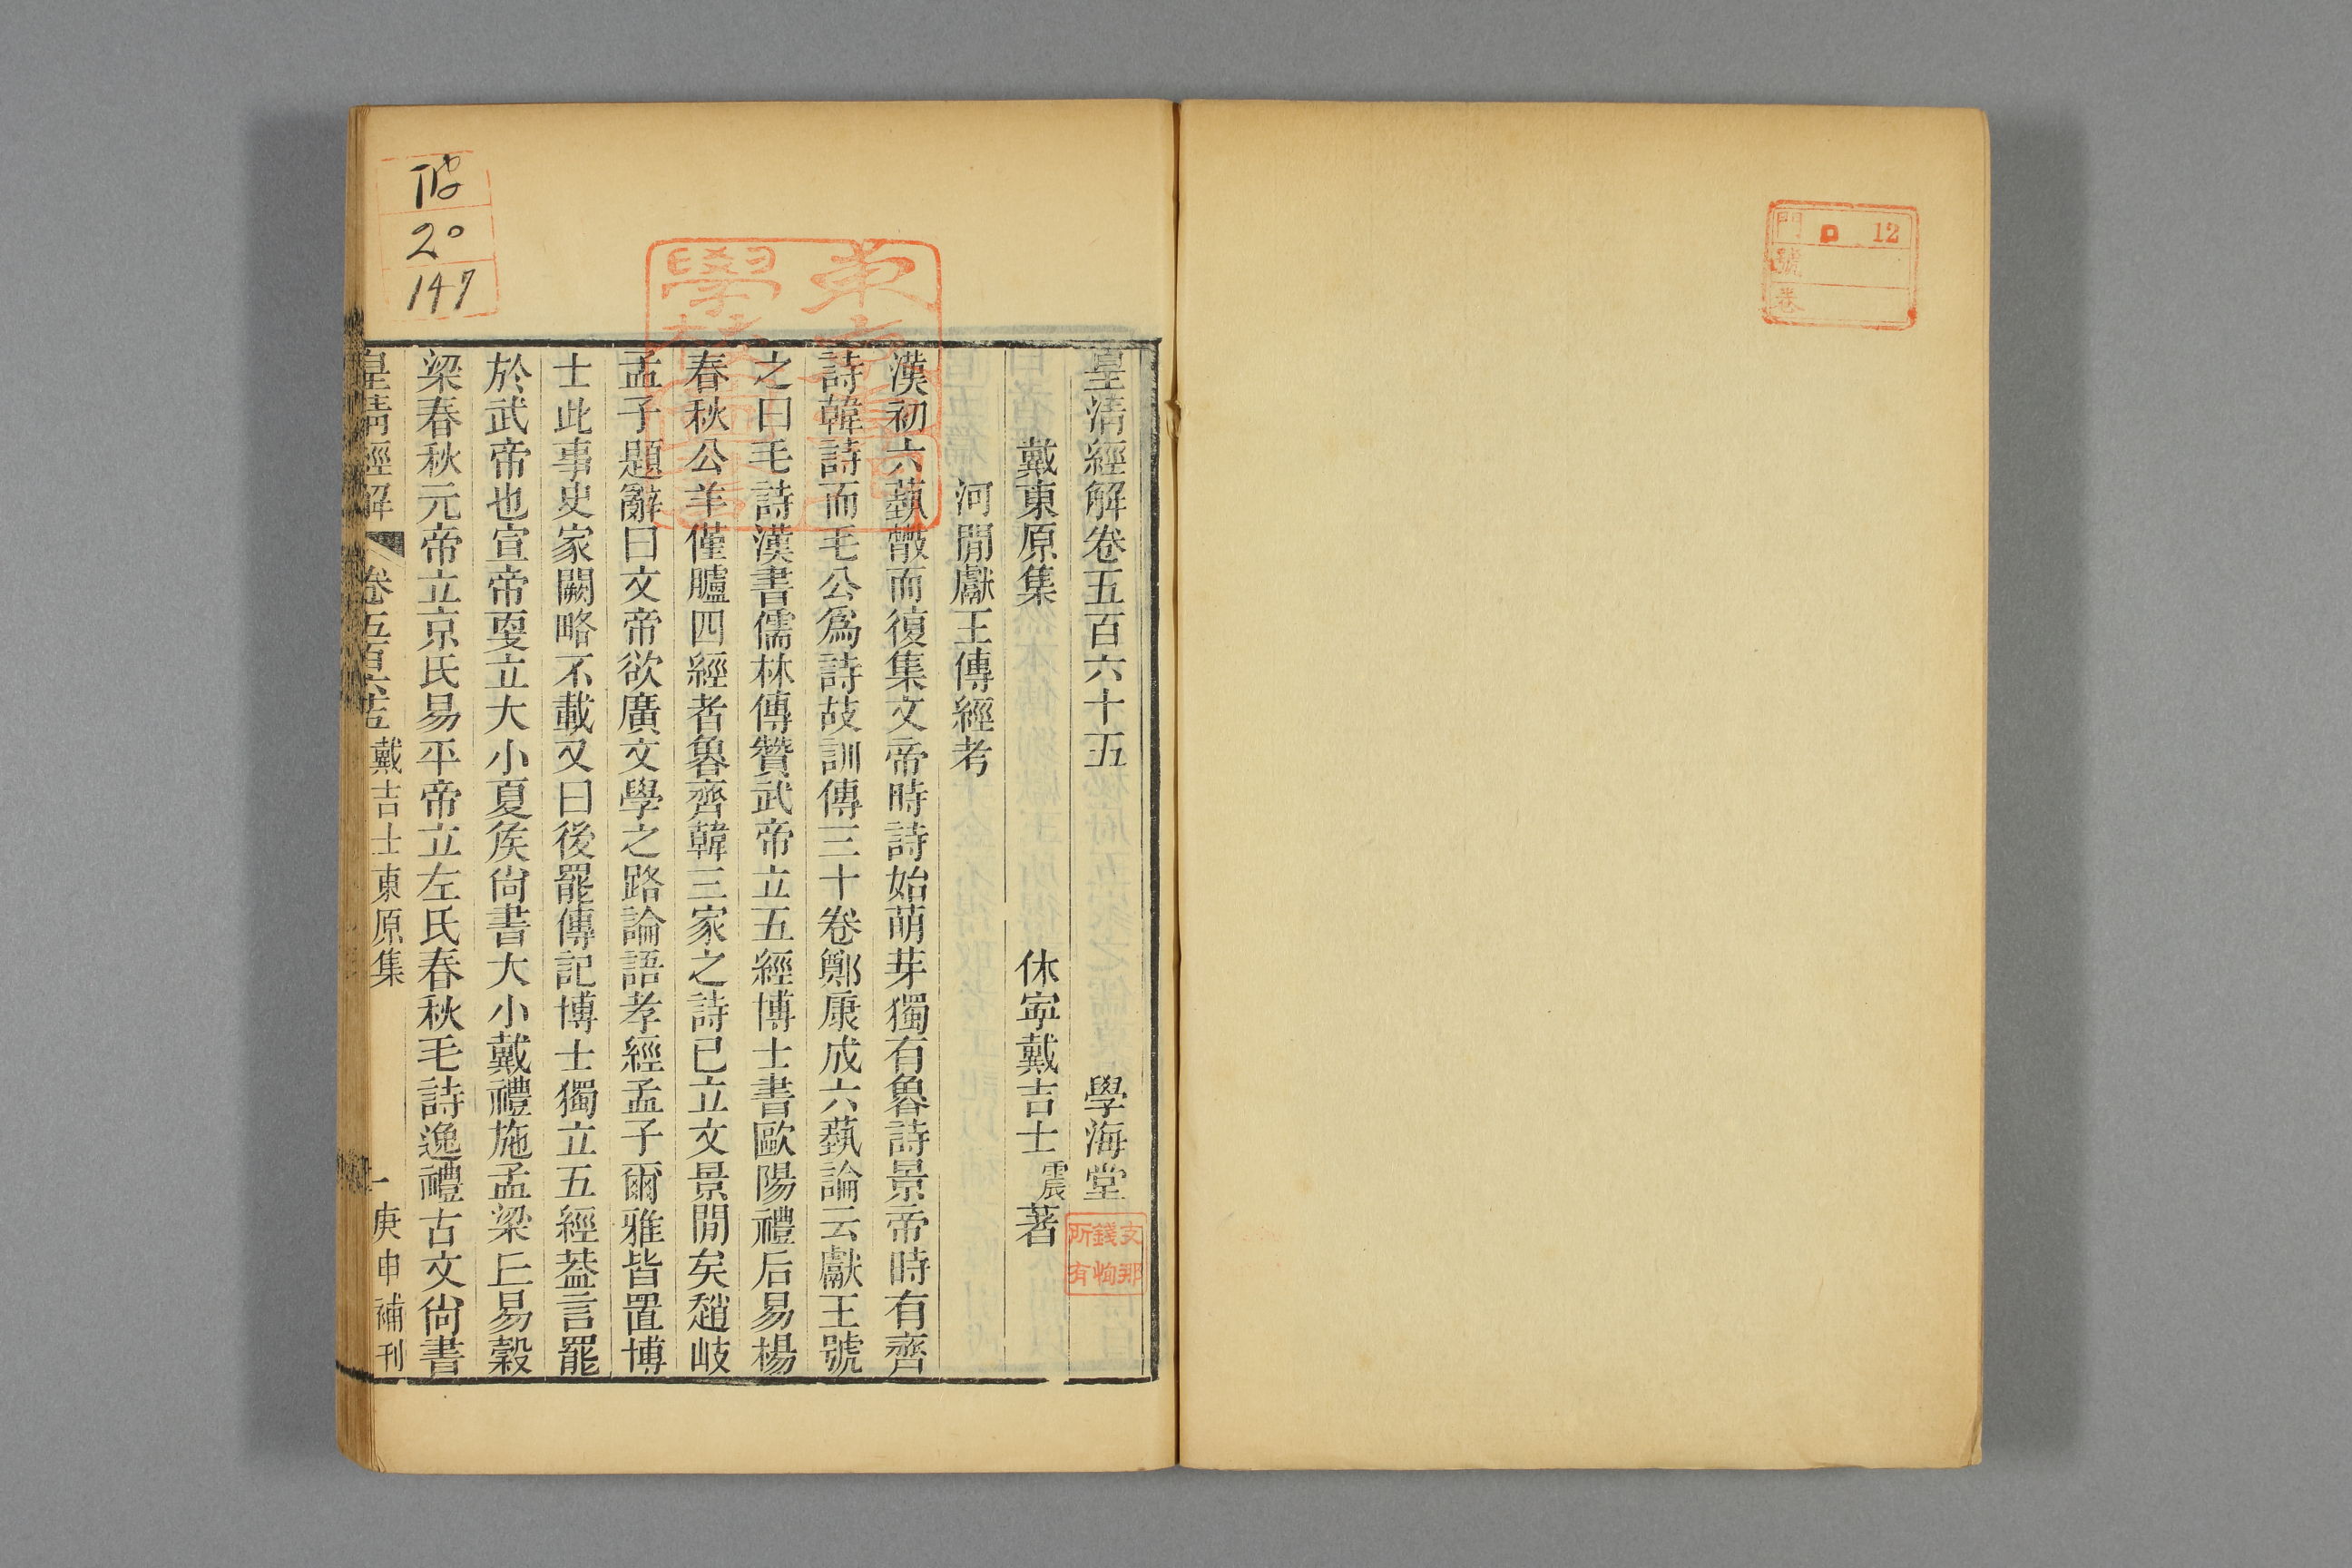 門 口 12
號
卷
皇清經解卷五百六十五 學海堂
戴東原集 休寧戴吉士震著
河閒獻王傳經考
漢初六蓺㪫而復集文帝時詩始萌芽獨有魯詩景帝時有齊
詩韓詩而毛公爲詩故訓傳三十卷鄭康成六蓺論云獻王號
之曰毛詩漢書儒林傳贊武帝立五經博士書歐陽禮后易楊
春秋公羊僅臚四經者魯齊韓三家之詩已立文景閒矣趙岐
孟子題辭曰文帝欲廣文學之路論語孝經孟子爾雅皆置博
士此事史家闕略不載又曰後罷傳記博士獨立五經葢言罷
於武帝也宣帝㪅立大小夏矦尙書大小戴禮施孟梁丘易穀
梁春秋元帝立京氏易平帝立左氏春秋毛詩逸禮古文尙書
皇清經解 卷五百六十五 戴吉士東原集 一 庚申補刊
支那
錢恂
所有
20
147